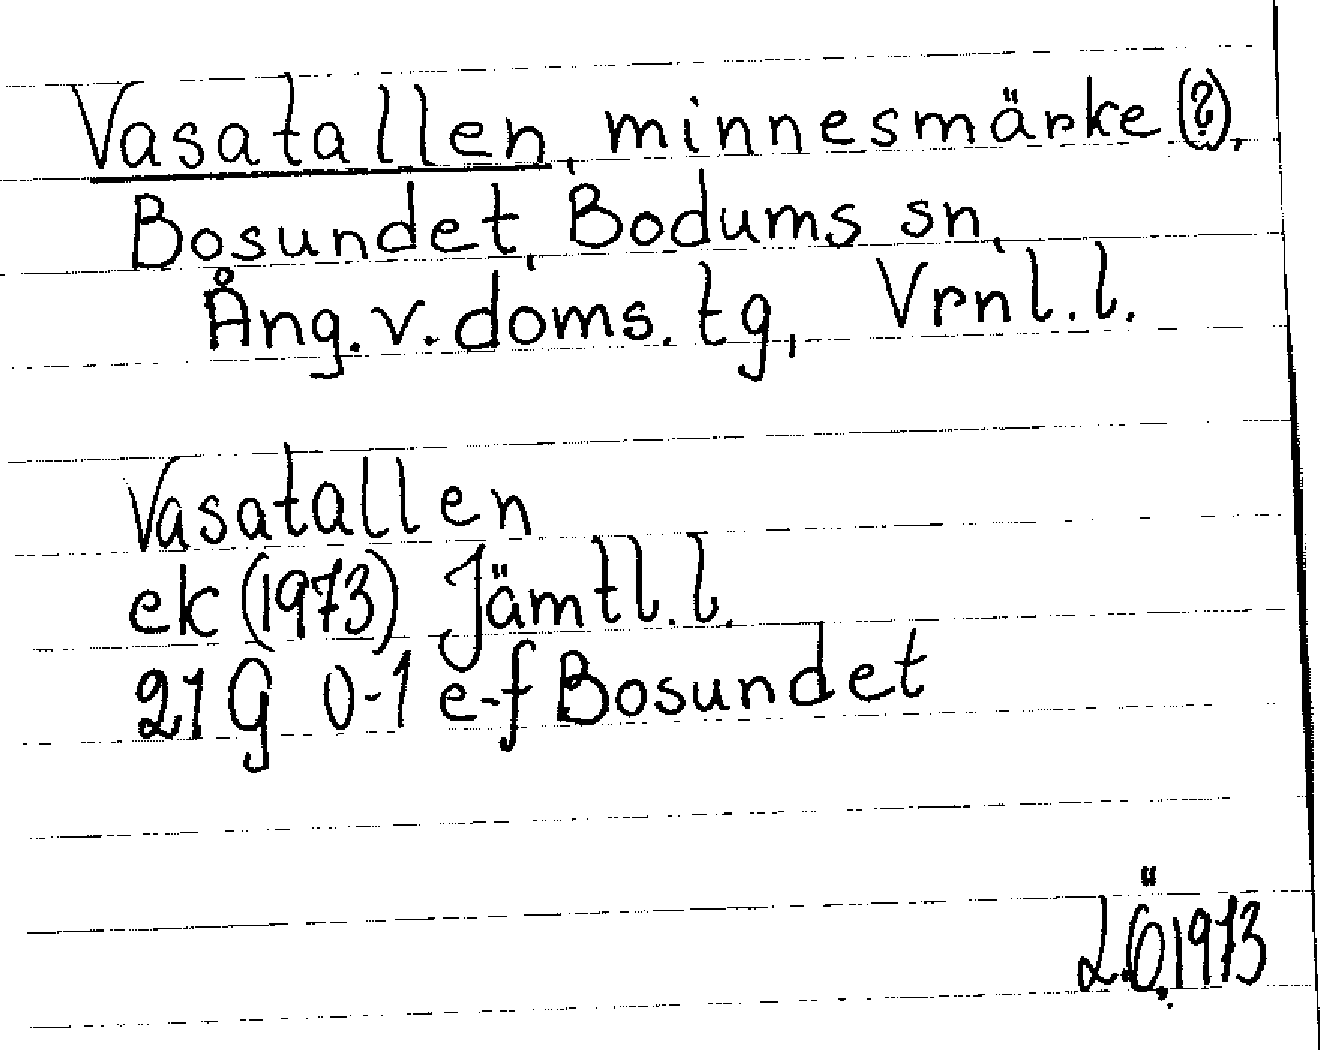 Vasatallen, minnesmärke (?),
Bosundet, Bodums sn,
Ång.v.doms.tg, Vrnl.l.
Vasatallen
ek (1973) Jämtl.l.
21G 0-1 e-f Bosundet
L.Ö.1973